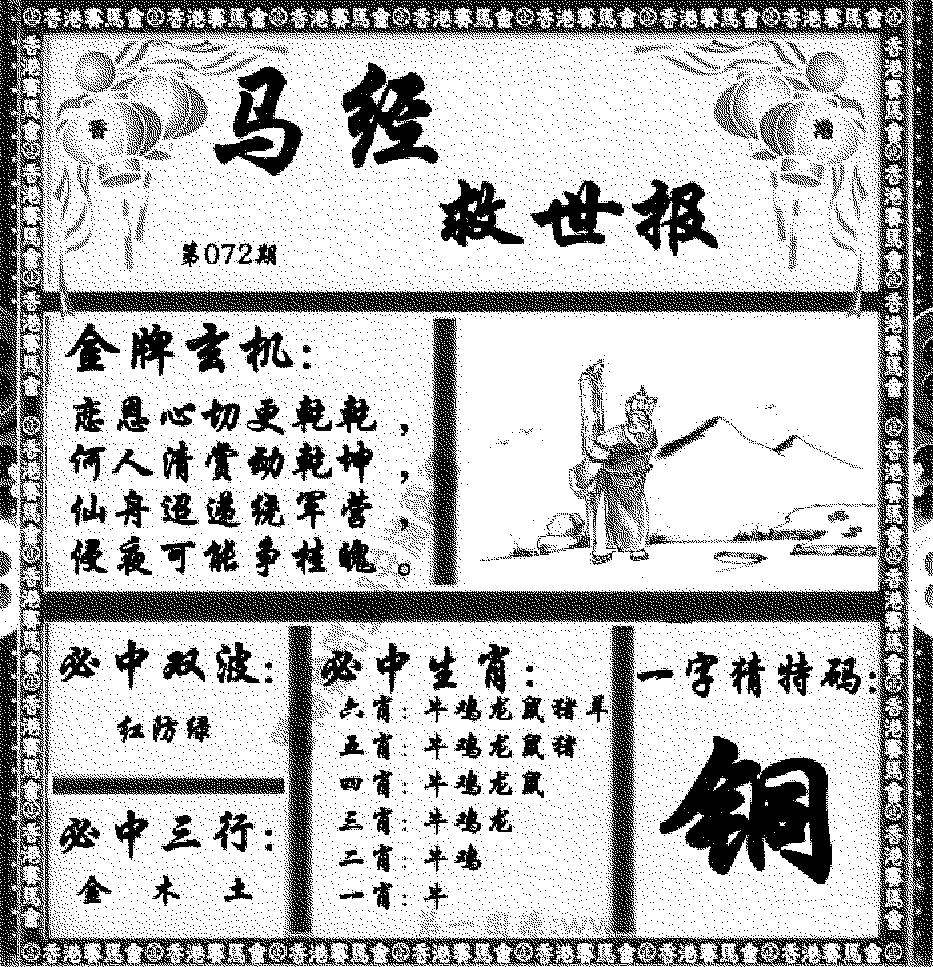 香港賽馬會香港賽馬會香港賽馬會香港賽馬會香港賽馬會香港賽馬會香港賽馬會
香 港
马经
救世报
第072期
金牌玄机:
恋恩心切更乾乾，
何人清赏动乾坤，
仙舟迢递绕军营，
侵夜可能争桂魄。
必中双波:
红防绿
必中三行:
金 木 土
必中生肖:
六肖:牛鸡龙鼠猪羊
五肖:牛鸡龙鼠猪
四肖:牛鸡龙鼠
三肖:牛鸡龙
二肖:牛鸡
一肖:牛
一字猜特码:
铜
香港賽馬會香港賽馬會香港賽馬會香港賽馬會香港賽馬會香港賽馬會香港賽馬會